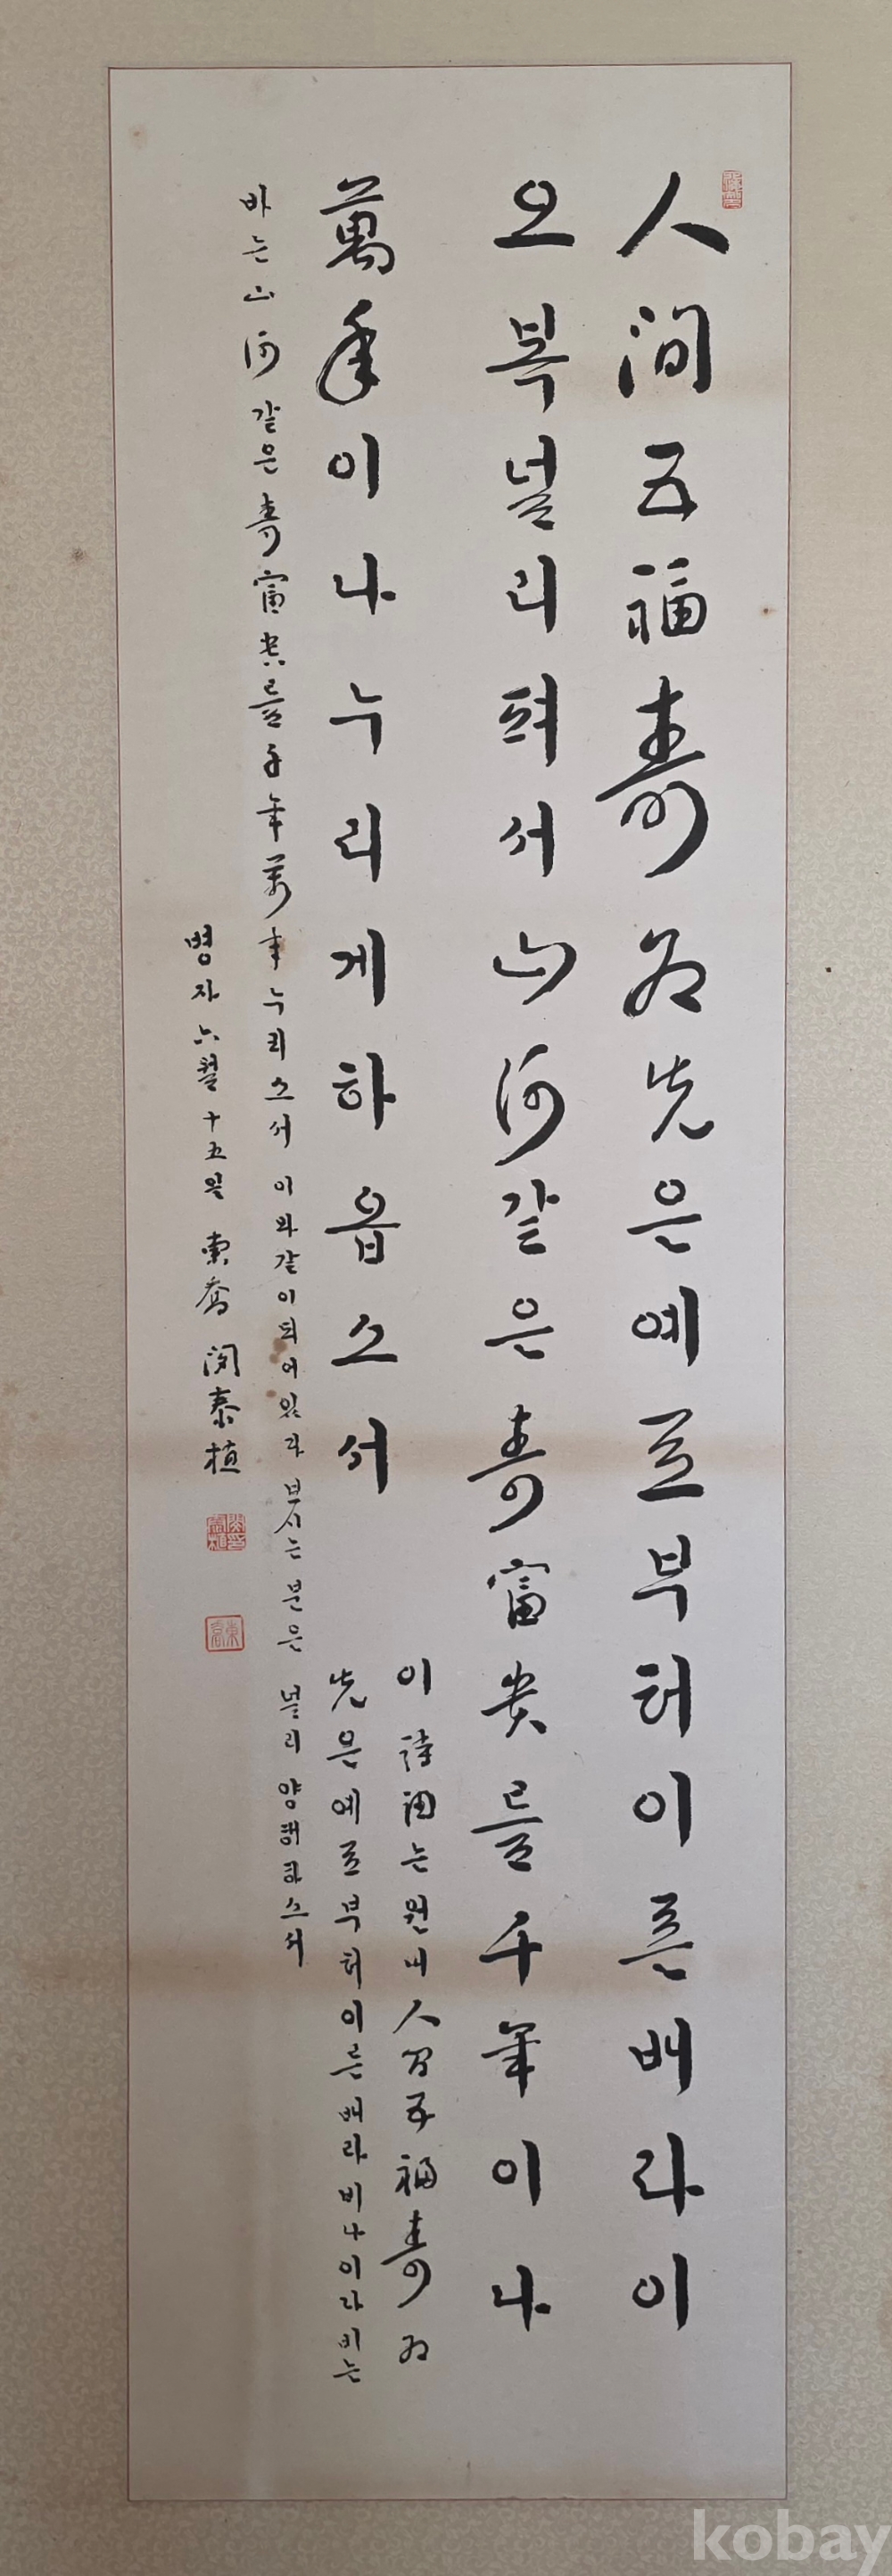 人間五福壽爲先은예로부터이른배라이
오복널리펴서山河같은壽富貴를千年이나
萬年이나누리게하옵소서
이詩調는원내人間五福壽爲
先은예로부터이른배라비나이다비는
바는山河같은壽富貴를千年萬年누리소서이와같이되어있다보시는분은널리양해하소서
병자六월十五일東喬閔泰植
kobay